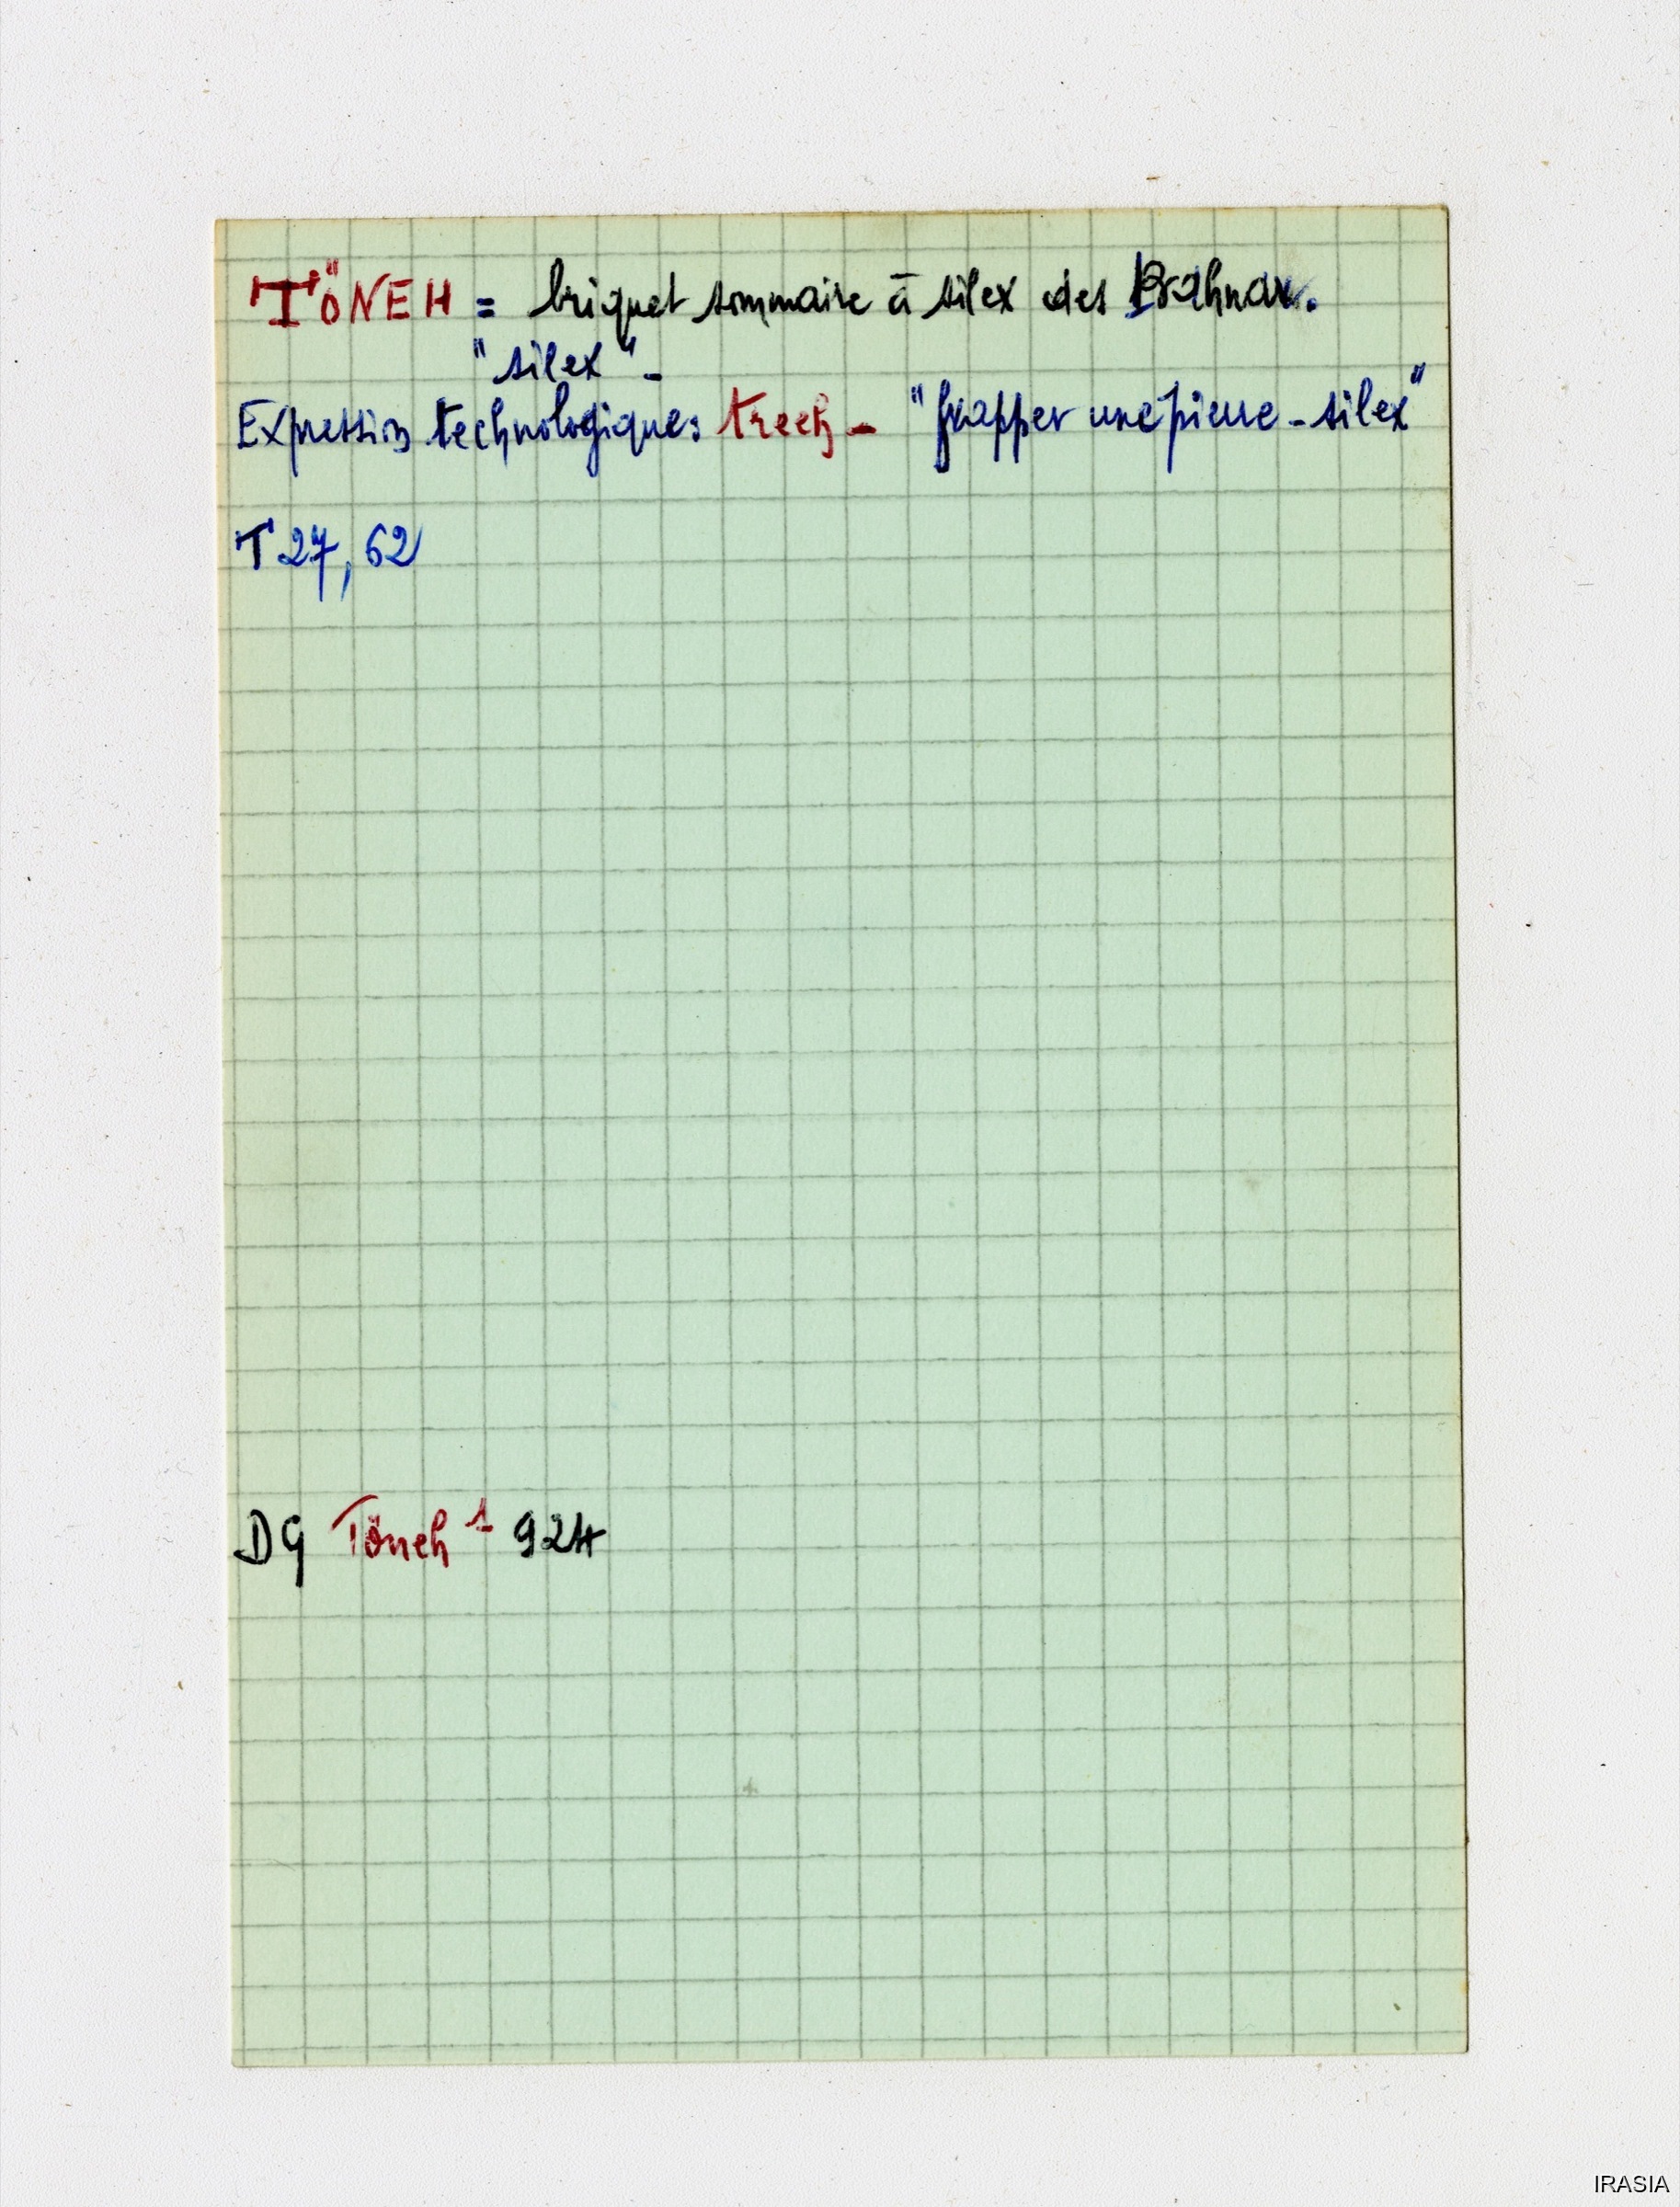 TÖNEH = briquet sommaire à silex des Bahnar.
"silex" -
Expression technologique: treeh - "frapper une pierre - silex"
T 27, 62
DG Töneh 1 924
IRASIA